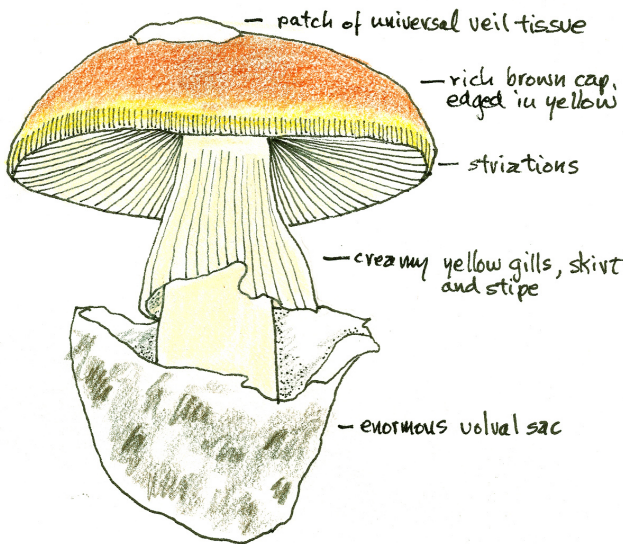 – patch of universal veil tissue
– rich brown cap,
edged in yellow
– striations
– creamy yellow gills, skirt
and stipe
– enormous volval sac